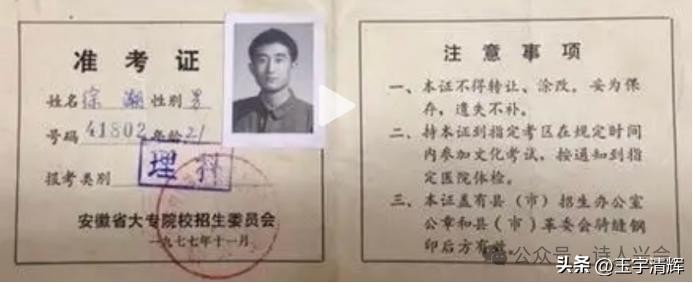 准考证
姓名 徐潮 性别 男
号码 41802 年龄 21
报考类别 理科
安徽省大专院校招生委员会
一九七七年十一月
注意事项
一、本证不得转让、涂改。妥为保
存，遗失不补。
二、持本证到指定考区在规定时间
内参加文化考试，按通知到指
定医院体检。
三、本证盖有县（市）招生办公室
公章和县（市）革委会骑缝钢
印后方有效。
公众号·诗人兴会
头条@玉宇清辉